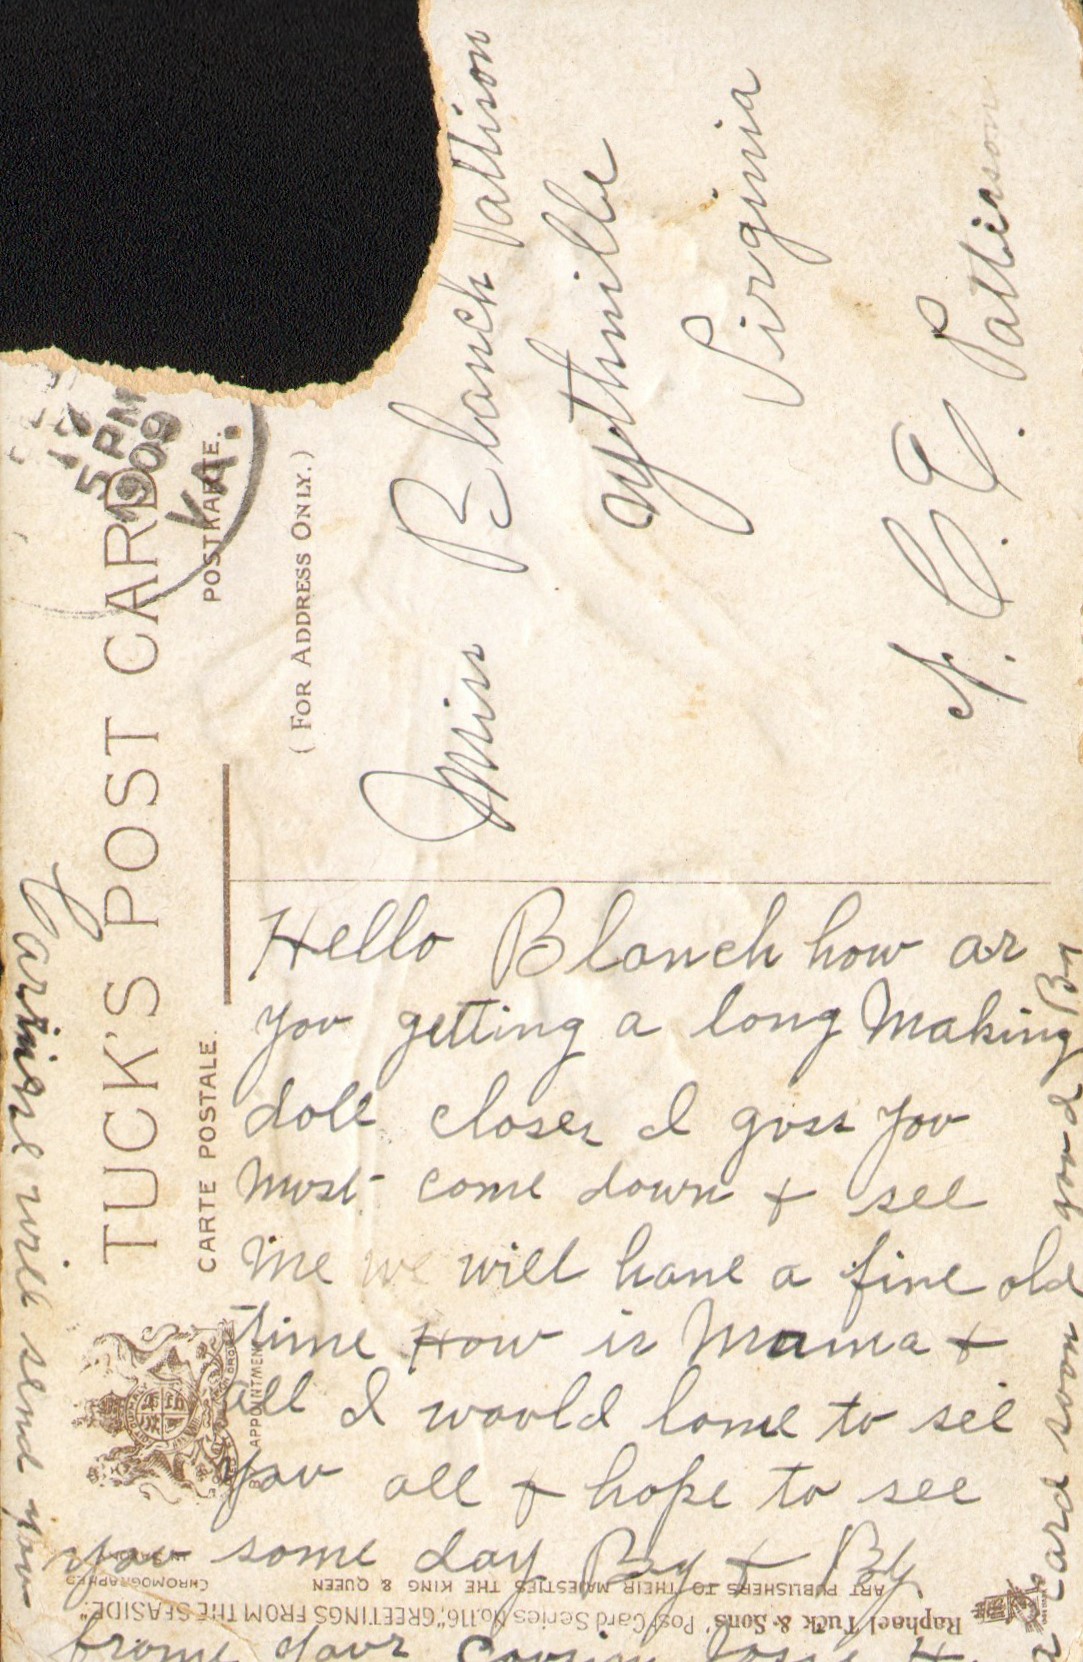 TUCK'S POST CARD
CARTE POSTALE. POSTKARTE.
( FOR ADDRESS ONLY.)
5 PM
1909
VA.
Miss Blanch Pattison
Wythville
Virginia
C. C. Pattison
Hello Blanch how ar
you getting a long Making
doll closer I guss you
must come down + see
me we will hane a fine old
time How is Mama +
all I woold lome to see
you all + hope to see
you some day By + By
frome your Cousin
Carmine will send you
a card soon good By
BY APPOINTMENT
Raphael Tuck & Sons' Post Card Series No. 116, "GREETINGS FROM THE SEASIDE."
ART PUBLISHERS TO THEIR MAJESTIES THE KING & QUEEN
CHROMOGRAPHED